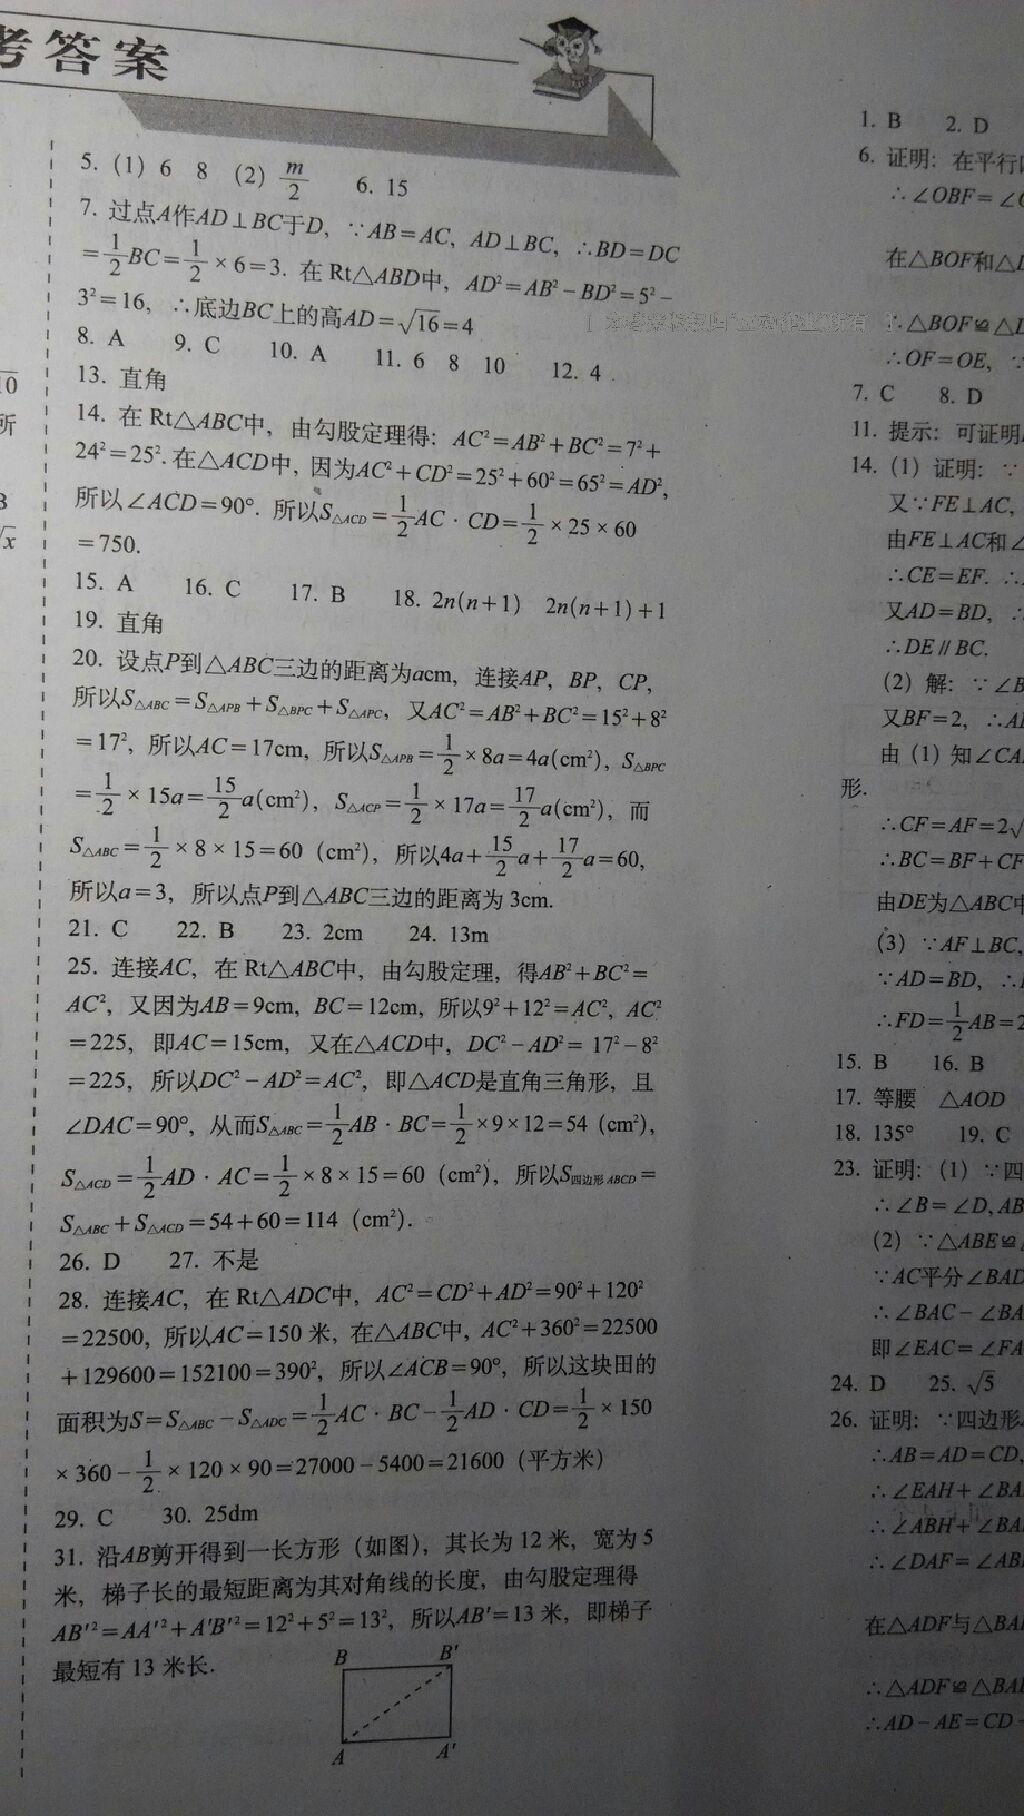 考答案
5. (1) 6 8 (2) m/2 6. 15
7. 过点A作AD⊥BC于D, ∵AB=AC, AD⊥BC, ∴BD=DC
=1/2BC=1/2×6=3. 在Rt△ABD中, AD²=AB²-BD²=5²-
3²=16, ∴底边BC上的高AD=√16=4
8. A 9. C 10. A 11. 6 8 10 12. 4
13. 直角
14. 在Rt△ABC中, 由勾股定理得: AC²=AB²+BC²=7²+
24²=25². 在△ACD中, 因为AC²+CD²=25²+60²=65²=AD²,
所以∠ACD=90°. 所以S△ACD=1/2AC·CD=1/2×25×60
=750.
15. A 16. C 17. B 18. 2n(n+1) 2n(n+1)+1
19. 直角
20. 设点P到△ABC三边的距离为acm, 连接AP, BP, CP,
所以S△ABC=S△APB+S△BPC+S△APC, 又AC²=AB²+BC²=15²+8²
=17², 所以AC=17cm, 所以S△APB=1/2×8a=4a(cm²), S△BPC
=1/2×15a=15/2a(cm²), S△ACP=1/2×17a=17/2a(cm²), 而
S△ABC=1/2×8×15=60 (cm²), 所以4a+15/2a+17/2a=60,
所以a=3, 所以点P到△ABC三边的距离为3cm.
21. C 22. B 23. 2cm 24. 13m
25. 连接AC, 在Rt△ABC中, 由勾股定理, 得AB²+BC²=
AC², 又因为AB=9cm, BC=12cm, 所以9²+12²=AC², AC²
=225, 即AC=15cm, 又在△ACD中, DC²-AD²= 17²-8²
=225, 所以DC²-AD²=AC², 即△ACD是直角三角形, 且
∠DAC=90°, 从而S△ABC=1/2AB·BC=1/2×9×12=54 (cm²),
S△ACD=1/2AD·AC=1/2×8×15=60 (cm²), 所以S四边形ABCD=
S△ABC+S△ACD=54+60=114 (cm²).
26. D 27. 不是
28. 连接AC, 在Rt△ADC中, AC²=CD²+AD²=90²+120²
=22500, 所以AC=150米, 在△ABC中, AC²+360²=22500
+129600=152100=390², 所以∠ACB=90°, 所以这块田的
面积为S=S△ABC-S△ADC=1/2AC·BC-1/2AD·CD=1/2×150
×360-1/2×120×90=27000-5400=21600 (平方米)
29. C 30. 25dm
31. 沿AB剪开得到一长方形 (如图), 其长为12米, 宽为5
米, 梯子长的最短距离为其对角线的长度, 由勾股定理得
AB'²=AA'²+A'B'²=12²+5²=13², 所以AB'=13米, 即梯子
最短有13米长.
B B'
A A'
1. B 2. D
6. 证明: 在平行
∴∠OBF=∠
在△BOF和△
∴△BOF≌△
∴OF=OE,
7. C 8. D
11. 提示: 可证明
14. (1) 证明: ∵
又∵FE⊥AC,
由FE⊥AC和∠
∴CE=EF. ∴
又AD=BD, ∴
∴DE∥BC.
(2) 解: ∵∠B
又BF=2, ∴
由 (1) 知∠CA
形.
∴CF=AF=2√
∴BC=BF+CF
由DE为△ABC中
(3) ∵AF⊥BC,
∵AD=BD, ∴
∴FD=1/2AB=2
15. B 16. B
17. 等腰 △AOD
18. 135° 19. C
23. 证明: (1) ∵四
∴∠B=∠D, AB
(2) ∵△ABE≌
∵AC平分∠BAD
∴∠BAC-∠BA
即∠EAC=∠FA
24. D 25. √5
26. 证明: ∵四边形
∴AB=AD=CD,
∴∠EAH+∠BA
∴∠ABH+∠BA
∴∠DAF=∠AB
在△ADF与△BA
∴△ADF≌△BA
∴AD-AE=CD-